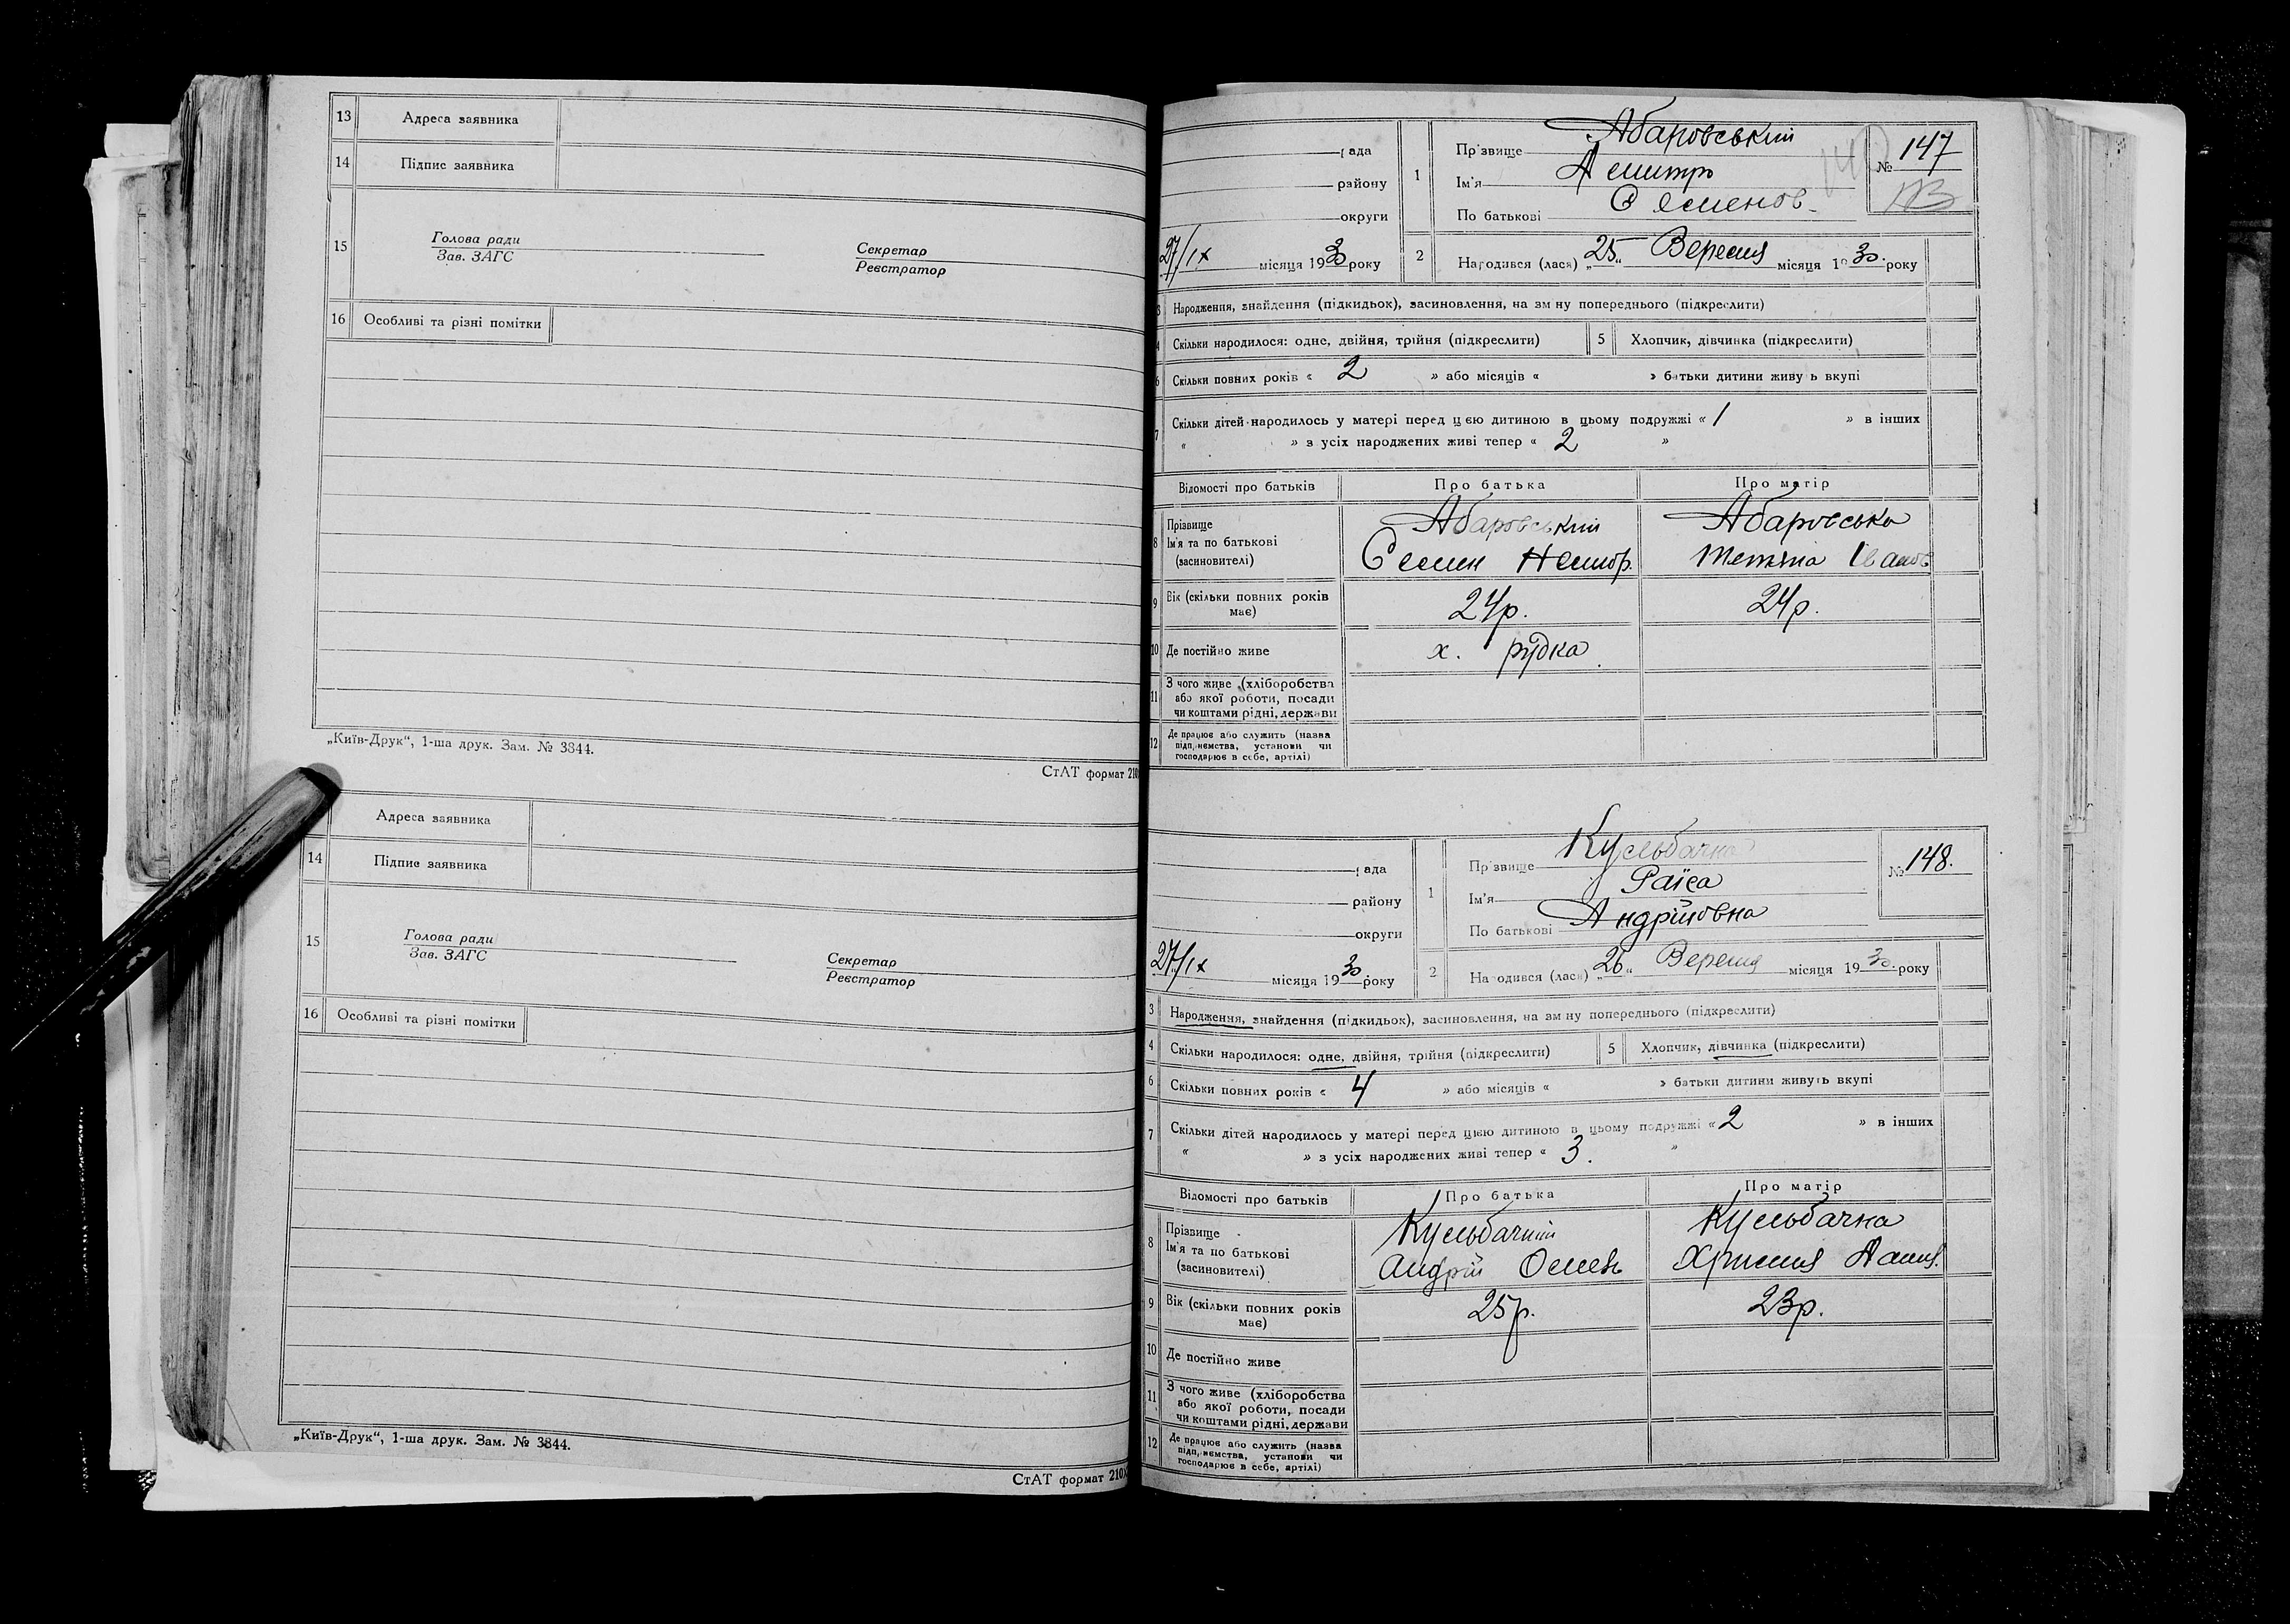 13 Адреса заявника
14 Підпис заявника
15 Голова ради Секретар
Зав. ЗАГС Реєстратор
16 Особливі та різні помітки
„Київ-Друк“, 1-ша друк. Зам. № 3844.
СтАТ формат 210
Адреса заявника
14 Підпис заявника
15 Голова ради Секретар
Зав. ЗАГС Реєстратор
16 Особливі та різні помітки
„Київ-Друк“, 1-ша друк. Зам. № 3844.
СтАТ формат 210
рада 1 Прізвище Абаровський № 147
району Ім'я Дмитро
округи По батькові Семенов
27/IX місяця 1930 року 2 Народився (лася) „25“ Вересня місяця 1930 року
3 Народження, знайдення (підкидьок), засиновлення, на зміну попереднього (підкреслити)
4 Скільки народилося: одне, двійня, трійня (підкреслити) 5 Хлопчик, дівчинка (підкреслити)
6 Скільки повних років « 2 » або місяців « » батьки дитини живуть вкупі
7 Скільки дітей народилось у матері перед цією дитиною в цьому подружжі « 1 » в інших
« » з усіх народжених живі тепер « 2 »
Відомості про батьків Про батька Про матір
8 Прізвище Абаровський Абаровська
Ім'я та по батькові Семен Тетяна Іванов
(засновителі)
9 Вік (скільки повних років має) 24р. 24р.
10 Де постійно живе х. Рудка
11 З чого живе (хліборобства
або якої роботи, посади
чи коштами рідні, держави
12 Де працює або служить (назва
підприємства, установи чи
господарює в себе, артілі)
рада 1 Прізвище Кульбачна № 148.
району Ім'я Раїса
округи По батькові Андрійовна
27/IX місяця 1930 року 2 Народився (лася) „26“ Вересня місяця 1930 року
3 Народження, знайдення (підкидьок), засиновлення, на зміну попереднього (підкреслити)
4 Скільки народилося: одне, двійня, трійня (підкреслити) 5 Хлопчик, дівчинка (підкреслити)
6 Скільки повних років « 4 » або місяців « » батьки дитини живуть вкупі
7 Скільки дітей народилось у матері перед цією дитиною в цьому подружжі « 2 » в інших
« » з усіх народжених живі тепер « 3. »
Відомості про батьків Про батька Про матір
8 Прізвище Кульбачний Кульбачна
Ім'я та по батькові Андрій Христя
(засиновителі)
9 Вік (скільки повних років має) 25р. 23р.
10 Де постійно живе
11 З чого живе (хліборобства
або якої роботи, посади
чи коштами рідні, держави
12 Де працює або служить (назва
підприємства, установи чи
господарює в себе, артілі)